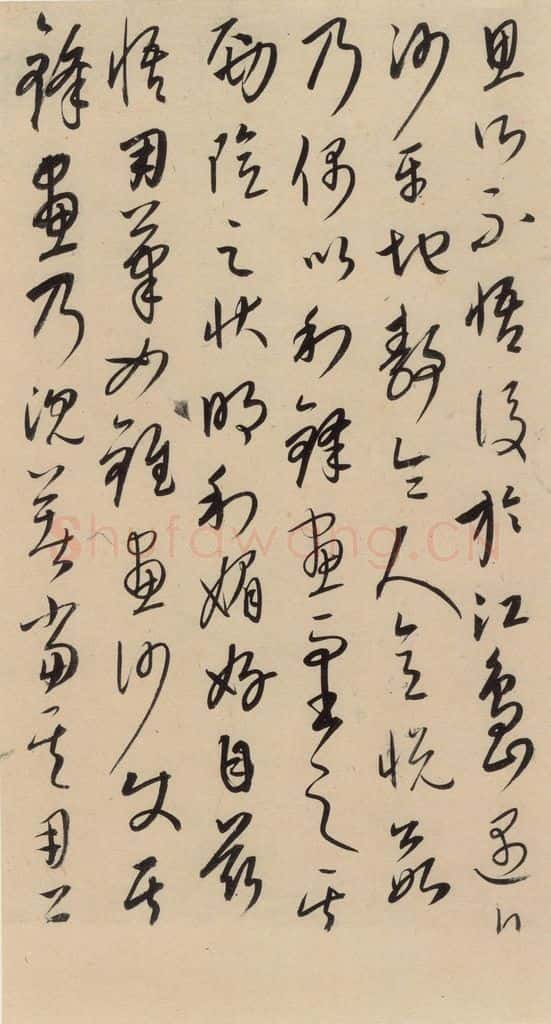 思所不悟後於江島遇見
沙平地靜令人意悅欲
乃偶以利鋒畫而書之其
勁險之狀明利媚好自茲
悟用筆如錐畫沙使其
鋒畫乃沈著當其用
Shufawang.CN